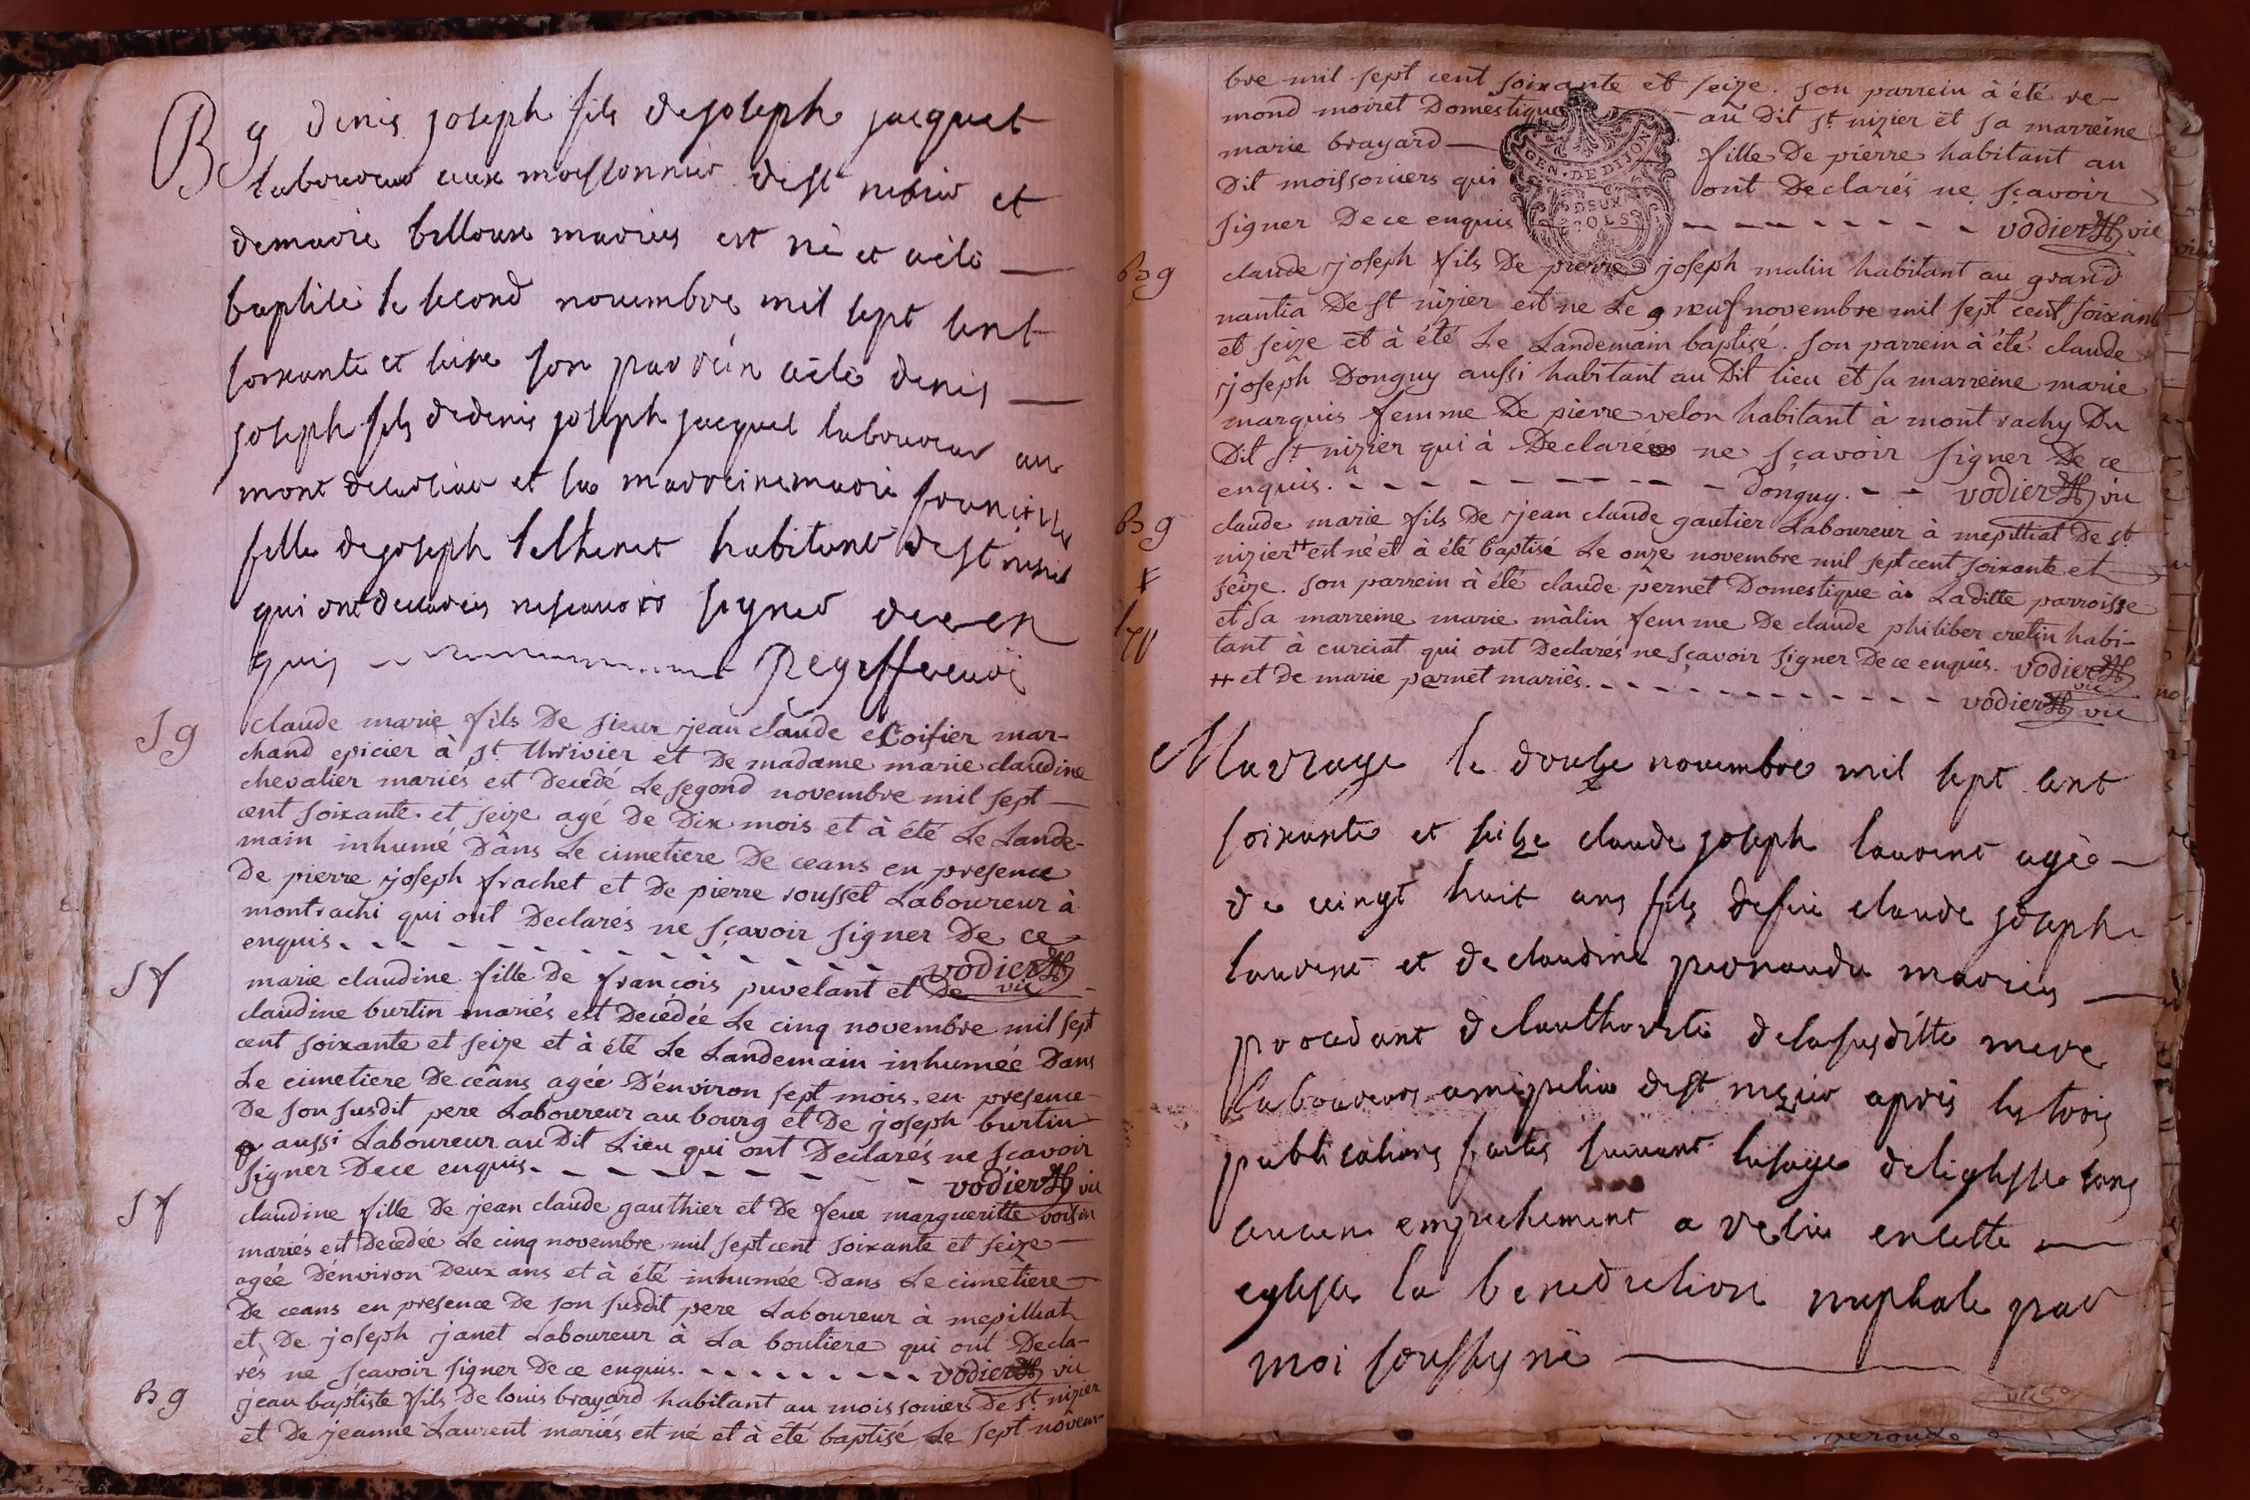 Bg denis joseph fils de joseph jacquet
laboureur aux moissonnier de st nisier et
de marie billoux mariés est né et a eté
baptisé le second novembre mil sept cent
soixante et seise son parrein a eté denis
joseph fils de denis joseph jacquet laboureur au
mont de curciat et sa marreine marie
fille de joseph habitant de st nisier
qui ont declarés ne scavoir signer de ce en
quis
Sg claude marie fils De sieur jean claude Coifier mar-
chand epicier à st. thrivier et De madame marie claudine
chevalier mariés est Decedé Le segond novembre mil sept
cent soixante et seize agé De Dix mois et à été Le Lande-
main inhumé Dans Le cimetiere De ceans en presence
De pierre joseph frachet et De pierre roussel Laboureur à
montrachi qui ont Declarés ne sçavoir signer De ce
enquis. vodier vic
Sf marie claudine fille De françois puvelant et De
claudine burtin mariés est Decédée Le cinq novembre mil sept
cent soixante et seize et à été Le Landemain inhumée Dans
Le cimetiere De ceans agée D'environ sept mois, en presence
De son susdit pere Laboureur au bourg et De joseph burtin
aussi Laboureur au Dit Lieu qui ont Declarés ne scavoir
signer De ce enquis. vodier vic
Sf claudine fille De jean claude gauthier et De feue margueritte voisin
mariés est Decedée Le cinq novembre mil sept cent soixante et seize
agée D'environ Deux ans et à été inhumée Dans Le cimetiere
De ceans en presence De son susdit pere Laboureur à mepilliat
et De joseph janet Laboureur à La boutiere qui ont Decla-
rés ne scavoir signer De ce enquis. vodier vic
Bg jean baptiste fils De louis brayard habitant au moissoniers De st. nizier
et De jeanne Laurent mariés est né et à été baptisé Le sept novem-
bre mil sept cent soixante et seize. son parrein à été re-
mond moiret Domestique au Dit st. nizier et sa marreine
marie brayard fille De pierre habitant au
Dit moissoniers qui ont Declarés ne sçavoir
signer De ce enquis vodier vic
GEN. DE DIJON
DEUX
SOLS
Bg claude joseph fils De pierre joseph malin habitant au grand
nantia De st nizier est ne Le 9 neuf novembre mil sept cent soixante
et seize et à été Le Landemain baptisé. son parrein à été claude
joseph Donguy aussi habitant au Dit lieu et sa marreine marie
marquis femme De pierre velon habitant à mont rachy Du
Dit st. nizier qui à Declaré ne sçavoir signer De ce
enquis. Donguy. vodier vic
Bg claude marie fils De jean claude gautier Laboureur à mepilliat De st.
nizier ++ est né et à été baptisé Le onze novembre mil sept cent soixante et
seize. son parrein à été claude pernet Domestique à Laditte parroisse
et sa marreine marie màlin femme De claude philiber cretin habi-
tant à curciat qui ont Declarés ne sçavoir signer De ce enquis. vodier vic
++ et De marie pernet mariés. vodier vic
Marriage le douze novembre mil sept cent
soixante et seize claude joseph laurent agé
de vingt huit ans fils de feu claude joseph
laurent et de claudine mariés
procedant de lauthorité de la susditte mere
laboureur a de st nizier aprés les trois
publications faites suivant lusage de leglisse sans
aucun empechement a recu en cette
eglisse la benediction nuptiale par
moi soussigné